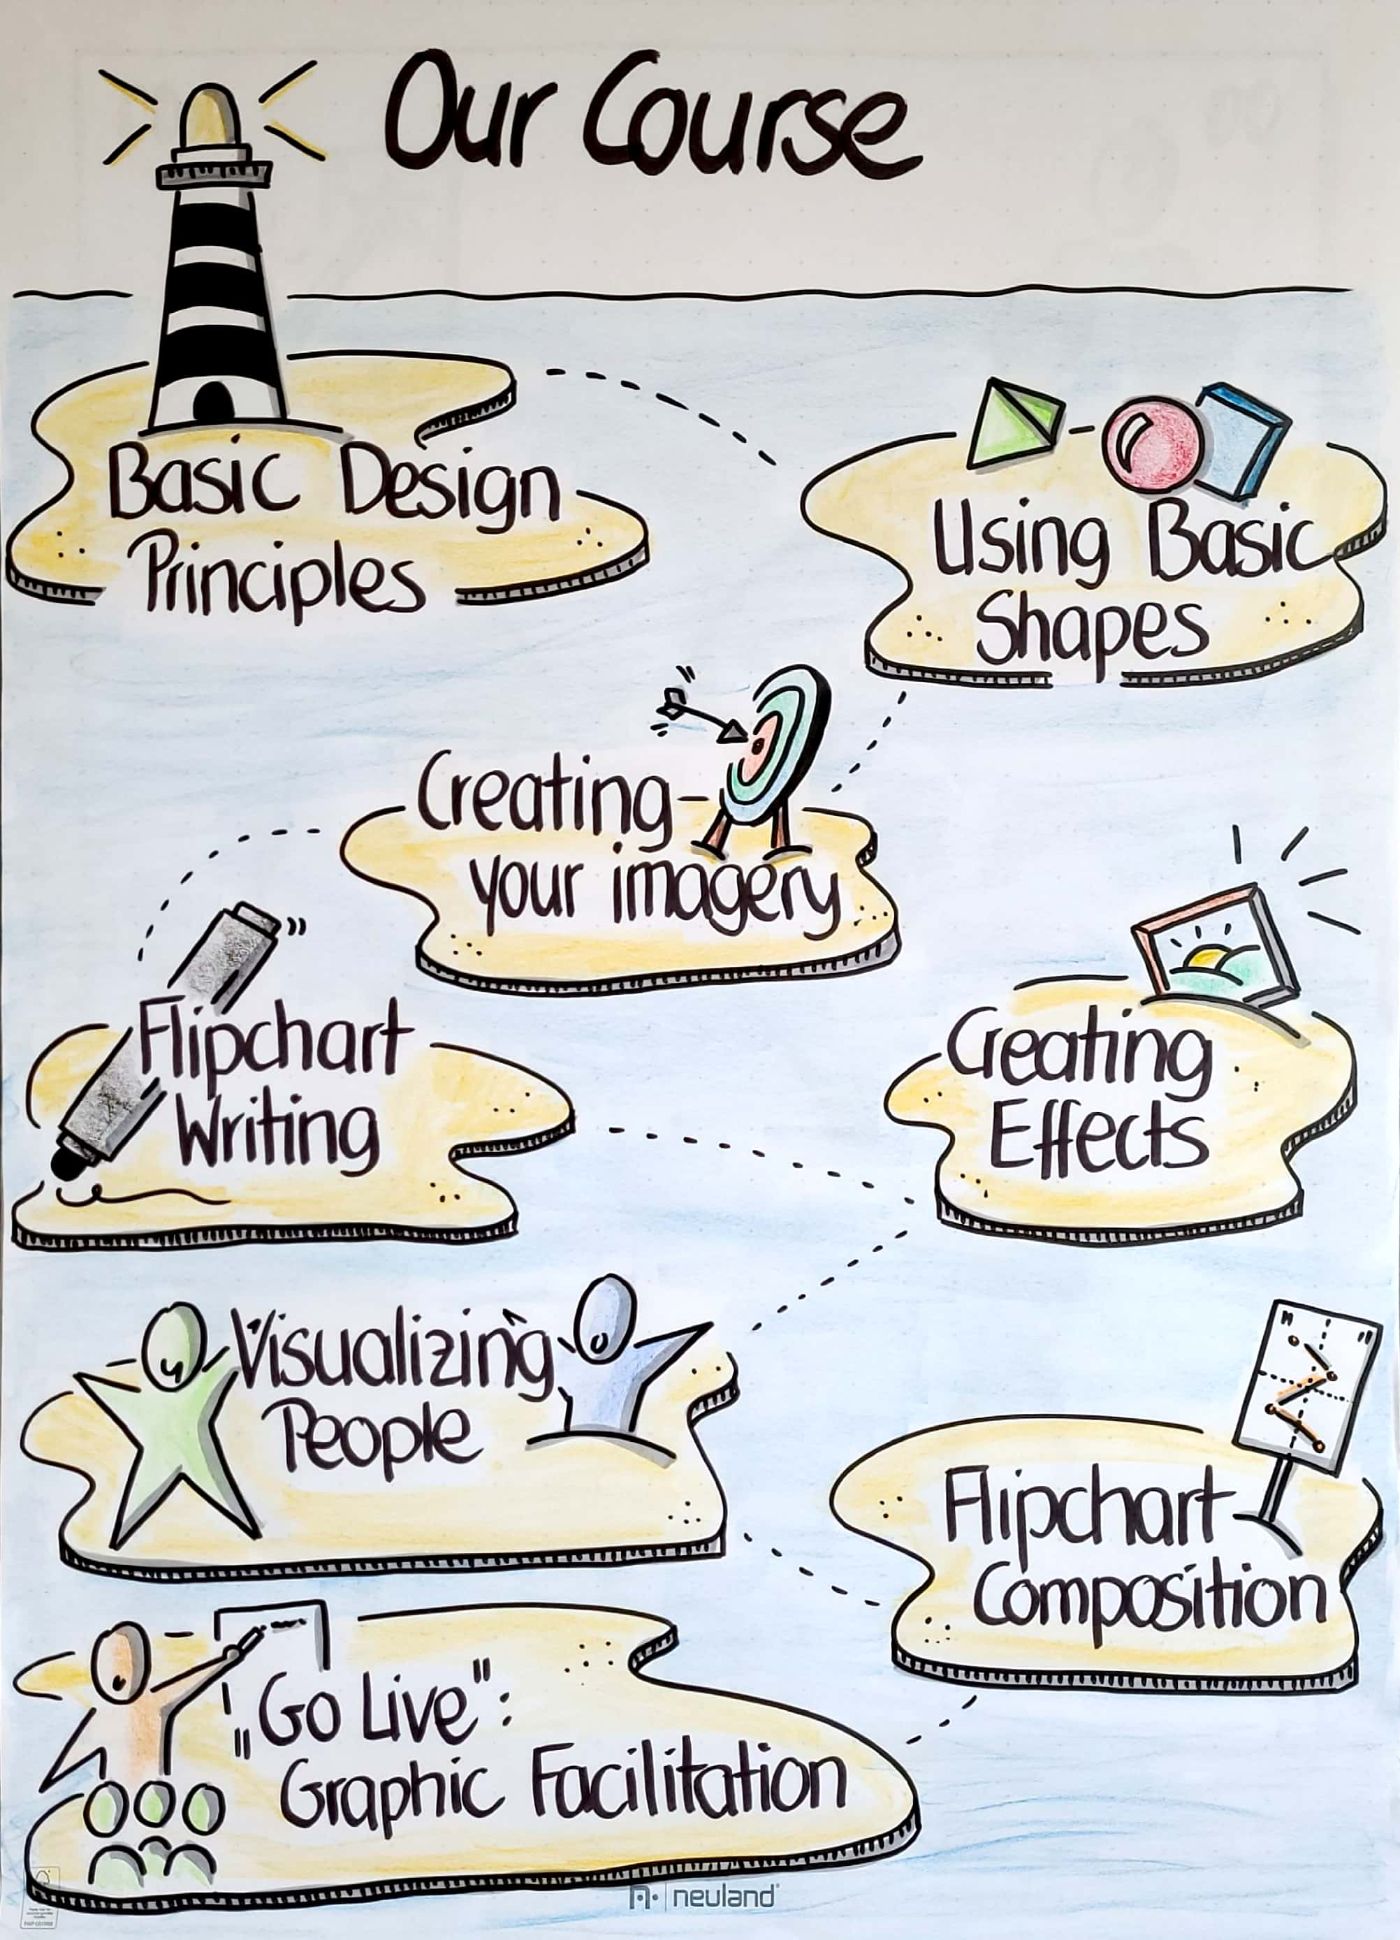 Our Course
Basic Design
Principles
Using Basic
Shapes
Creating
your imagery
Flipchart
Writing
Creating
Effects
Visualizing
People
Flipchart
Composition
„Go Live":
Graphic Facilitation
neuland